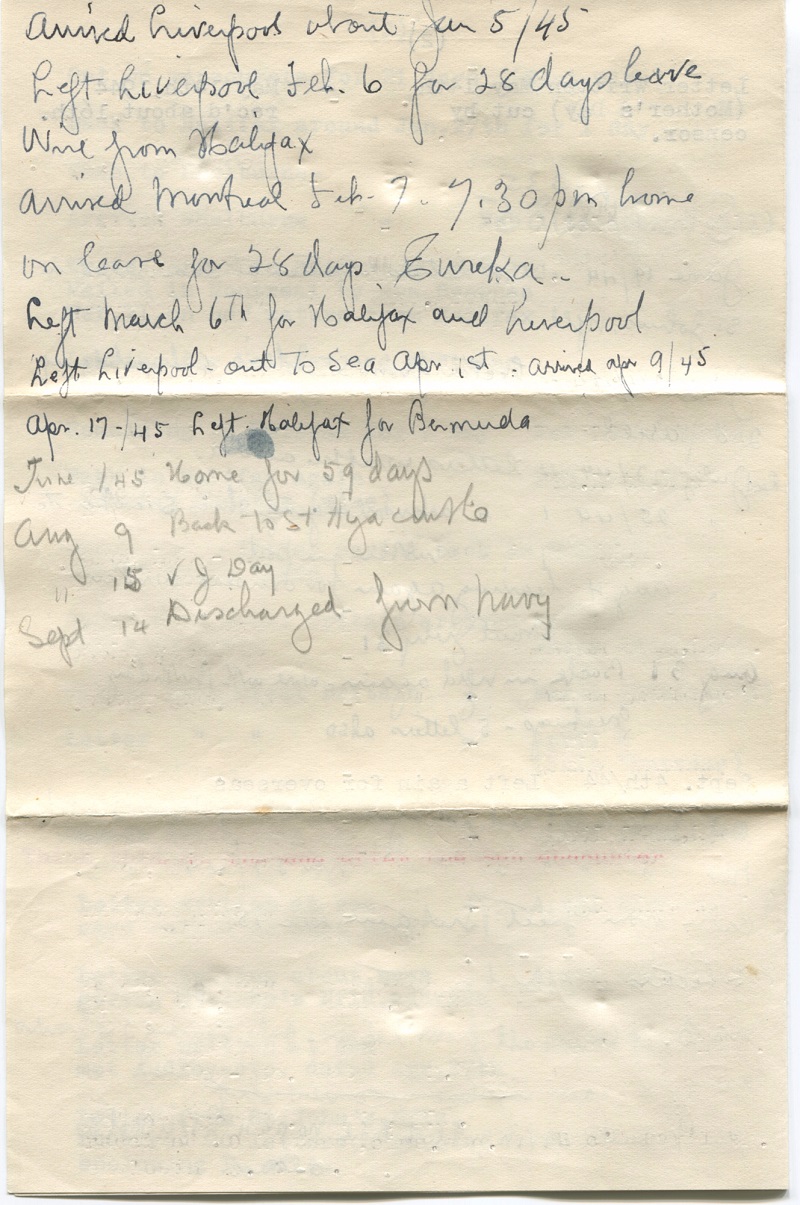 Arrived Liverpool about Jan 5/45
Left Liverpool Feb. 6 for 28 days leave
Wire from Halifax
arrived Montreal Feb. 7. 7.30 pm home
on leave for 28 days Eureka -
Left March 6th for Halifax and Liverpool
Left Liverpool - out To Sea Apr. 1st. arrived apr 9/45
Apr. 17-/45 Left Halifax for Bermuda
June /45 Home for 59 days
Aug 9 Back To St Hyacinthe
" 15 V J Day
Sept 14 Discharged from navy